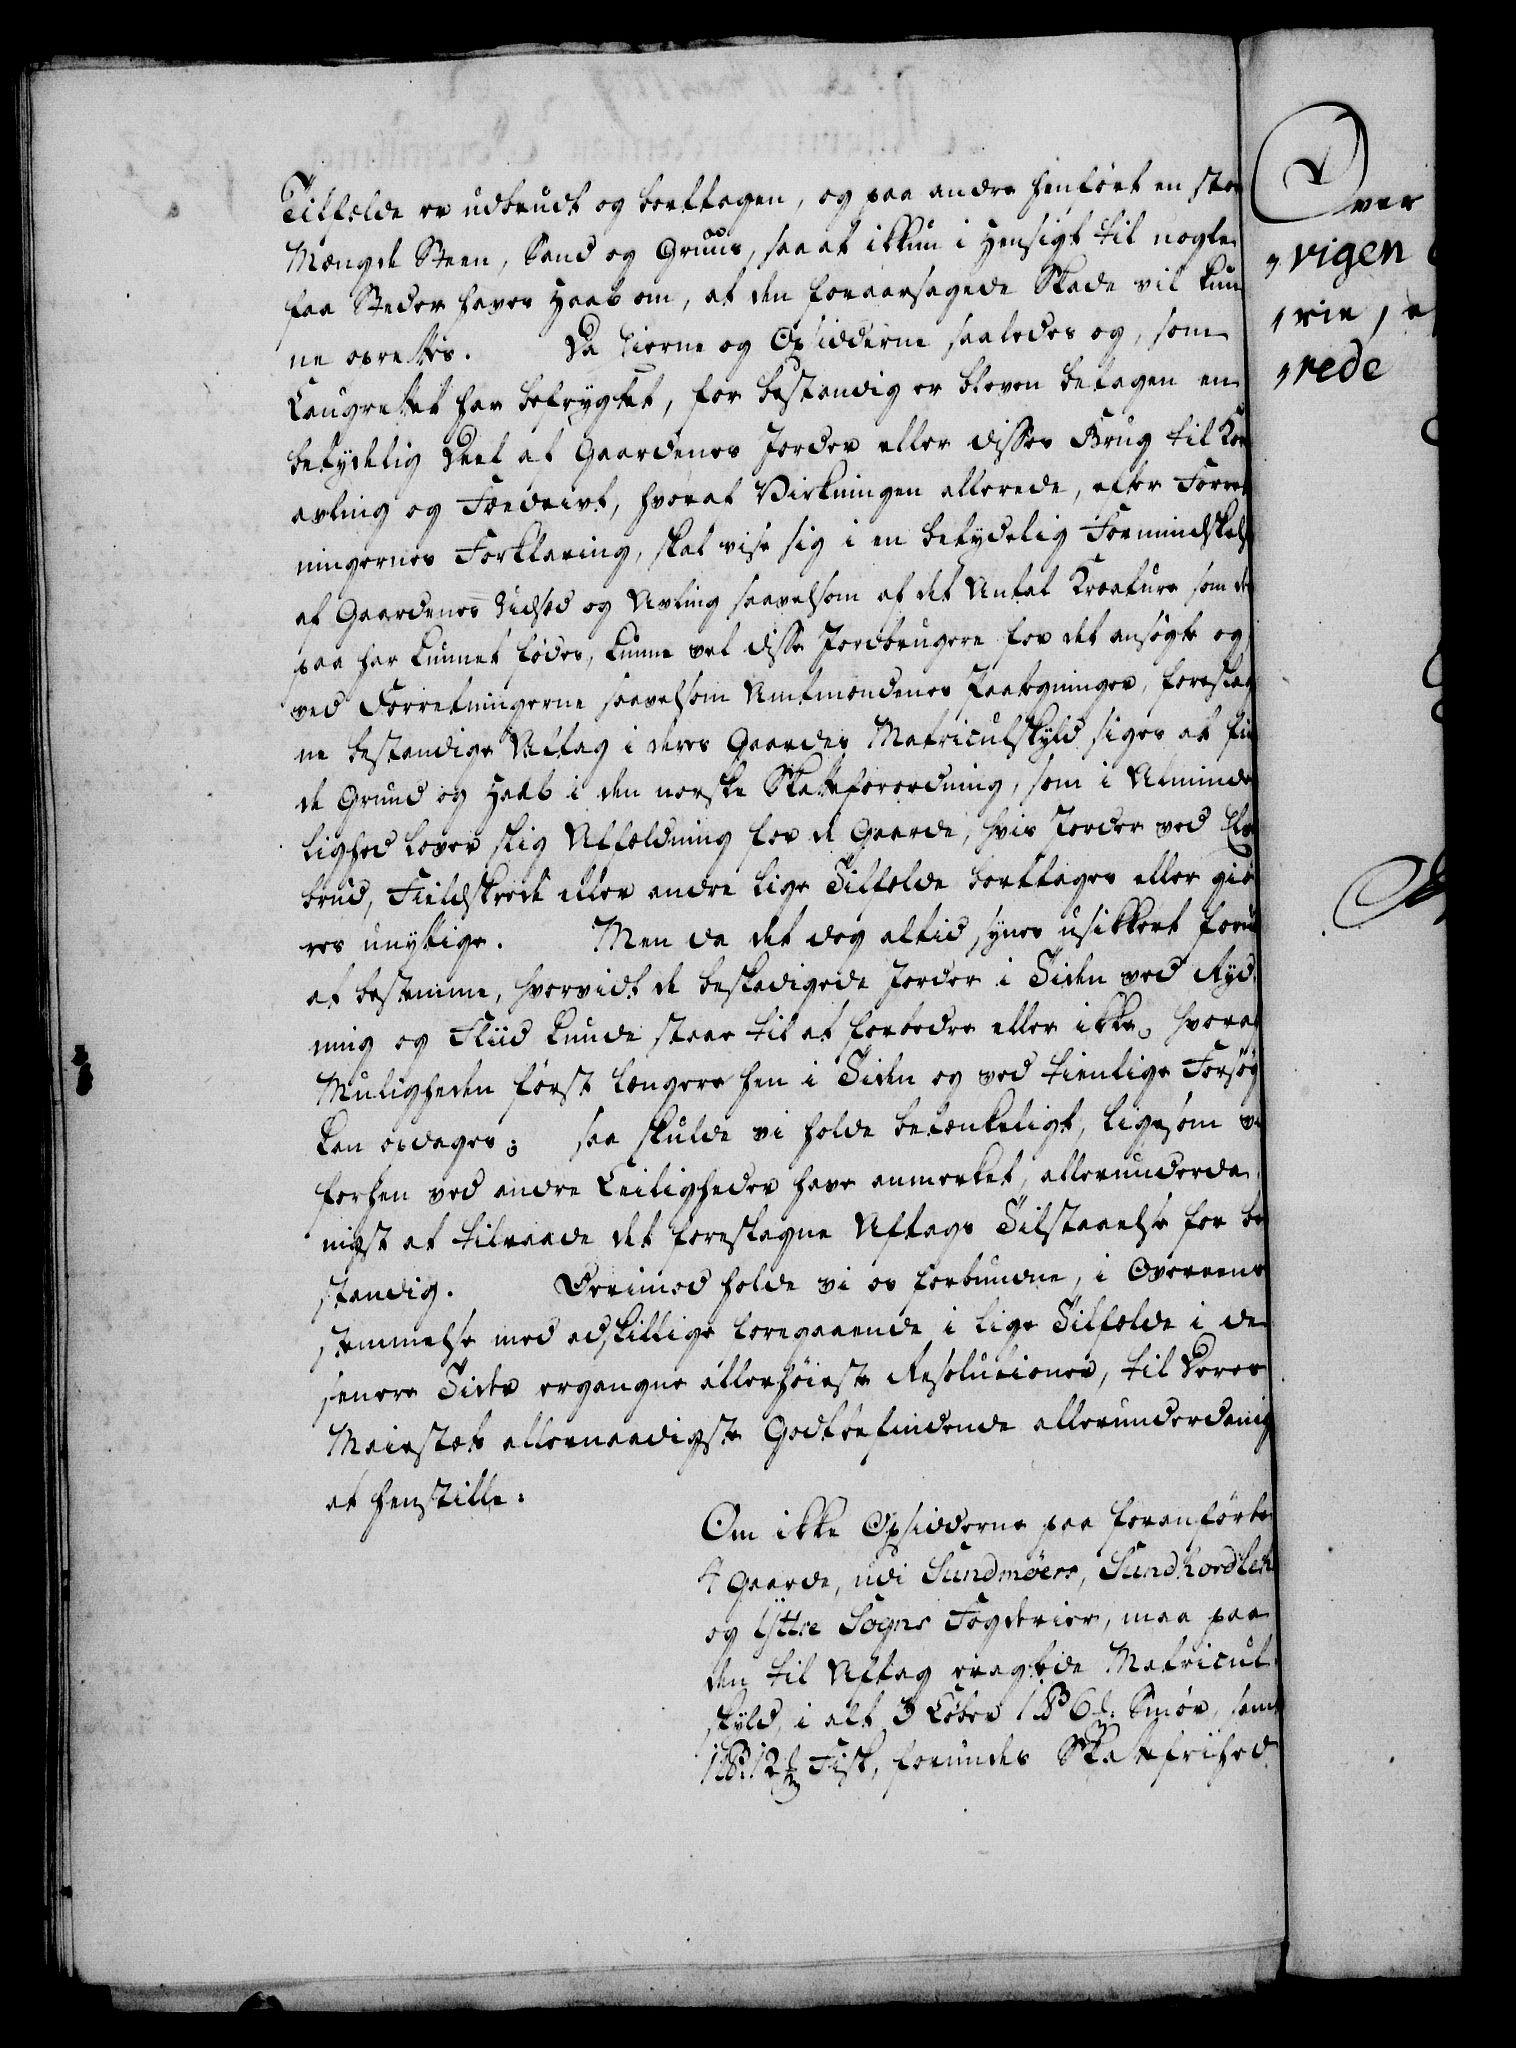 Tilfelde er udbrudt og borttagen, og paa andre henført en stor
Mængde Steen, Sand og Gruus, saa at ikkun i Hensigt til nogle
faa Steder haves Haab om, at den foraarsagede Skade vil kun
ne oprettes. Da Eierne og Opsidderne saaledes og, som
Laugrettet har befrygtet, for bestandig er bleven betagen en
betydelig Deel af Gaardenes Jorder eller disses Brug til Korn
avling og Foedrivt, hvoraf Virkningen allerede, efter Forret
ningernes Forklaring, skal vise sig i en betydelig Formindskelse
af Gaardenes Udsæd og Avling saavelsom af det Antal Kreature som der
paa har kunnet fødes, kunne vel disse Jordbrugere for det ansøgte og
ved Forretningerne saavelsom Amtmændenes Paategninger, foreslag
ne bestandige Aftag i deres Gaardes Matriculskyld siges at fin
de Grund og Haab i den norske Skatteforordning, som i Alminde
lighed lover slig Affældning for de Gaarde, hvis Jorder ved Elve
brud, Fieldskreed eller andre lige Tilfelde borttages eller giø
res unyttige. Men da det dog altid synes usikkert forud
at bestemme, hvorvidt de beskadigede Jorder i Tiden ved Ryd
ning og Fliid kunde staae til at forbedre eller ikke, hvoraf
Muligheden først længere hen i Tiden og ved tienlige Forsøg
kan opdages; saa skulde vi holde betænkeligt, ligesom vi
forhen ved andre Leiligheder have anmerket, allerunderda
nigst at tilraade det foreslagne Aftags Tilstaaelse for be
standig. Derimod holde vi os forbundne, i Overeens
stemmelse med adskillige foregaaende i lige Tilfelde i de
senere Tider ergangne allerhøieste Resolutioner, til Deres
Maiestæts allernaadigste Godtbefindende allerunderdanig
at henstille:
Om ikke Opsidderne paa foranførte
4 Gaarde, udi Sundmøers, Sundhordlehn
og Yttre Sogns Fogderier, maa paa
den til Aftag eragtede Matricul
skyld, i alt 3 Løber 1 6 Smør, samt
1 12 Fisk, forundes Skattefrihed
ver
vigen
rie,
rede